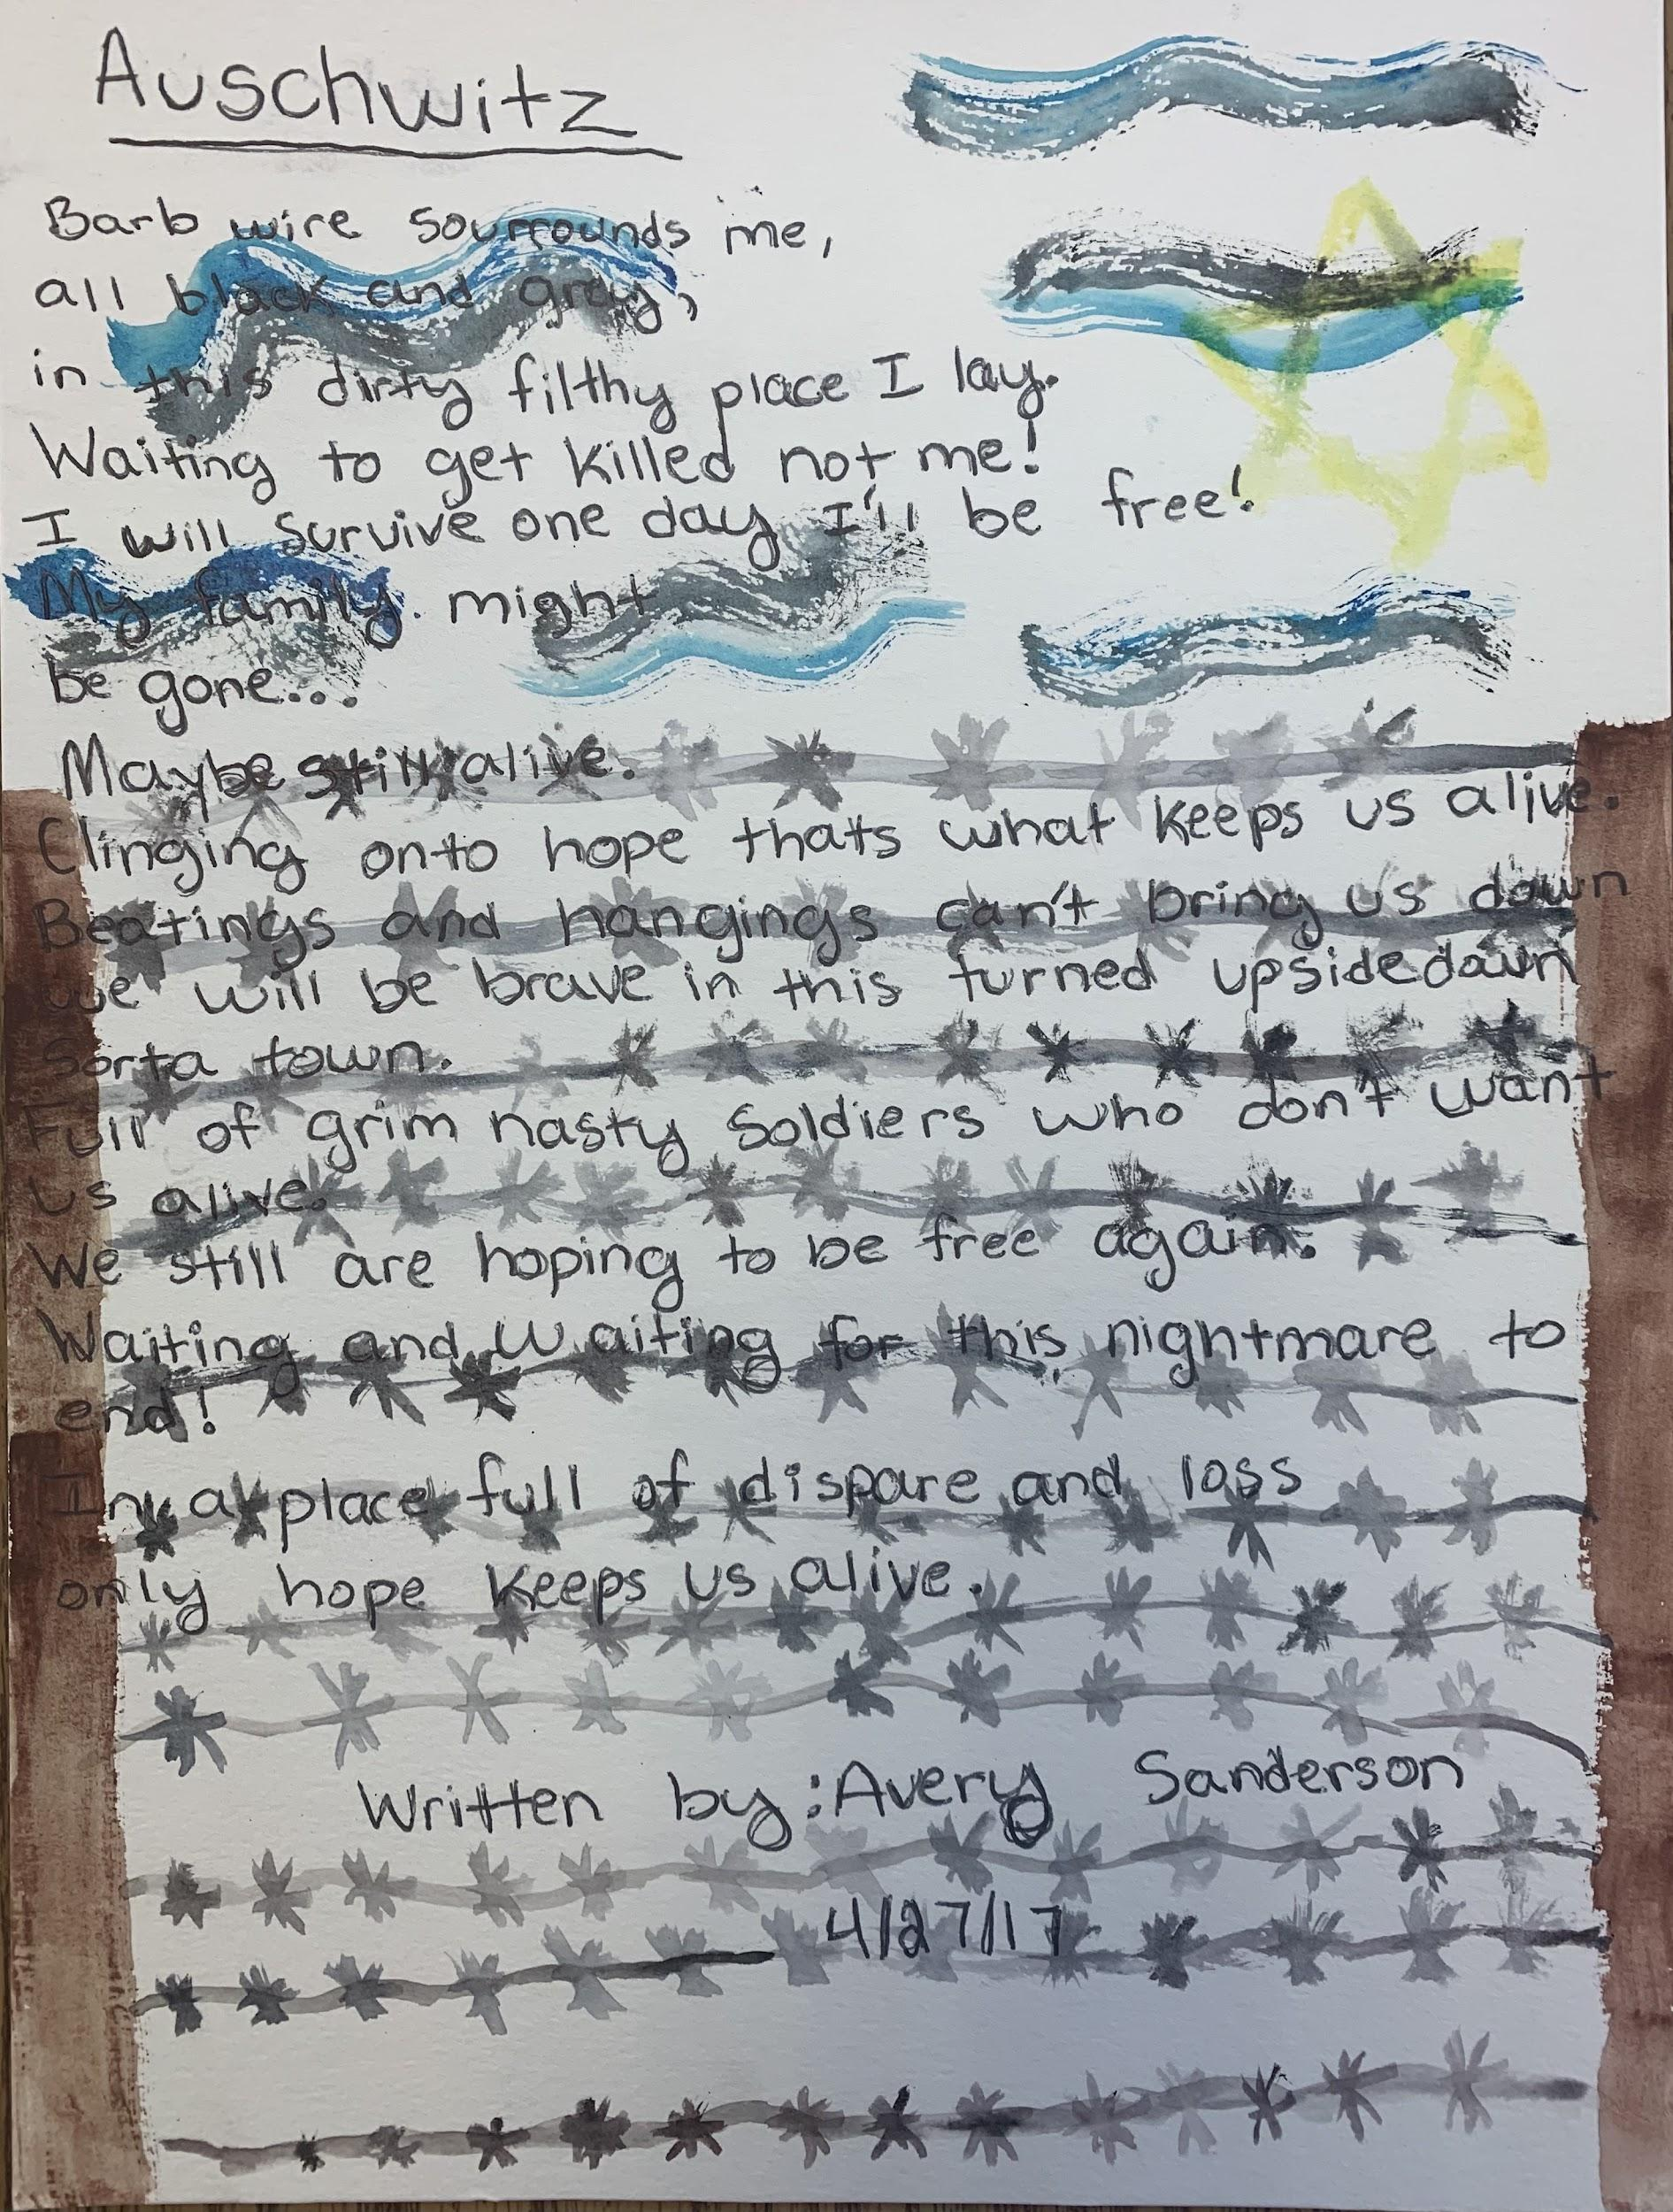 Auschwitz
Barb wire sourrounds me,
all black and gray,
in this dirty filthy place I lay.
Waiting to get killed not me!
I will survive one day I'll be free!
My family might
be gone...
Maybe still alive.
Clinging onto hope thats what keeps us alive.
Beatings and hangings can't bring us down
we will be brave in this turned upsidedown
Sorta town.
Full of grim nasty Soldiers who don't want
us alive.
We still are hoping to be free again.
Waiting and waiting for this nightmare to
end!
In a place full of dispare and loss
only hope keeps us alive.
Written by: Avery Sanderson
4/27/17